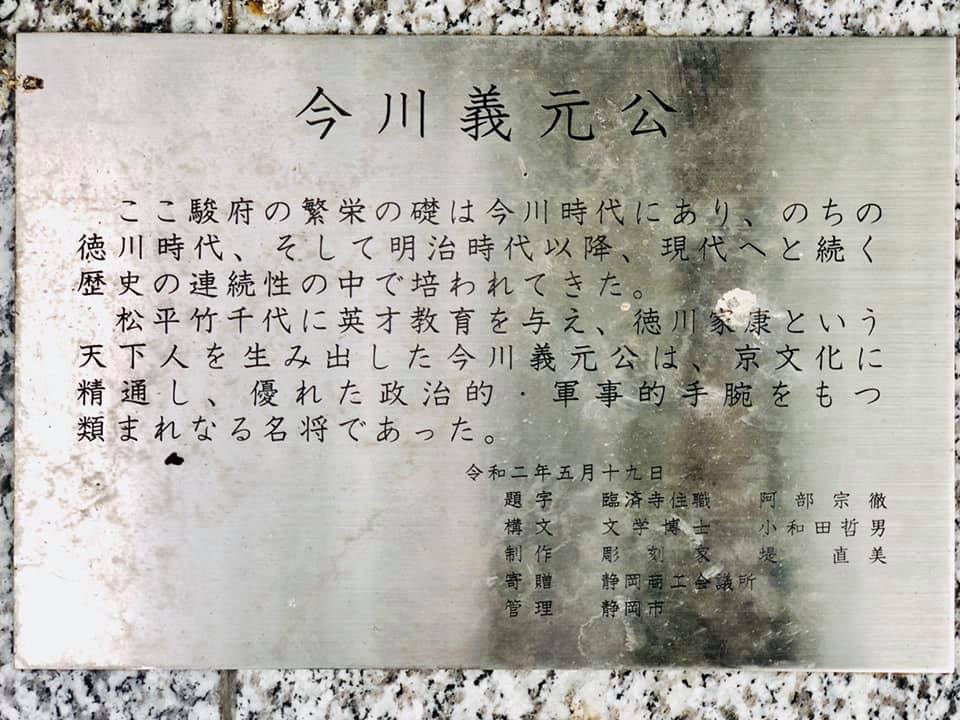 今川義元公
ここ駿府の繁栄の礎は今川時代にあり、のちの
徳川時代、そして明治時代以降、現代へと続く
歴史の連続性の中で培われてきた。
松平竹千代に英才教育を与え、徳川家康という
天下人を生み出した今川義元公は、京文化に
精通し、優れた政治的・軍事的手腕をもつ
類まれなる名将であった。
令和二年五月十九日
題字 臨済寺住職 阿部宗徹
構文 文学博士 小和田哲男
制作 彫刻家 堤 直美
寄贈 静岡商工会議所
管理 静岡市